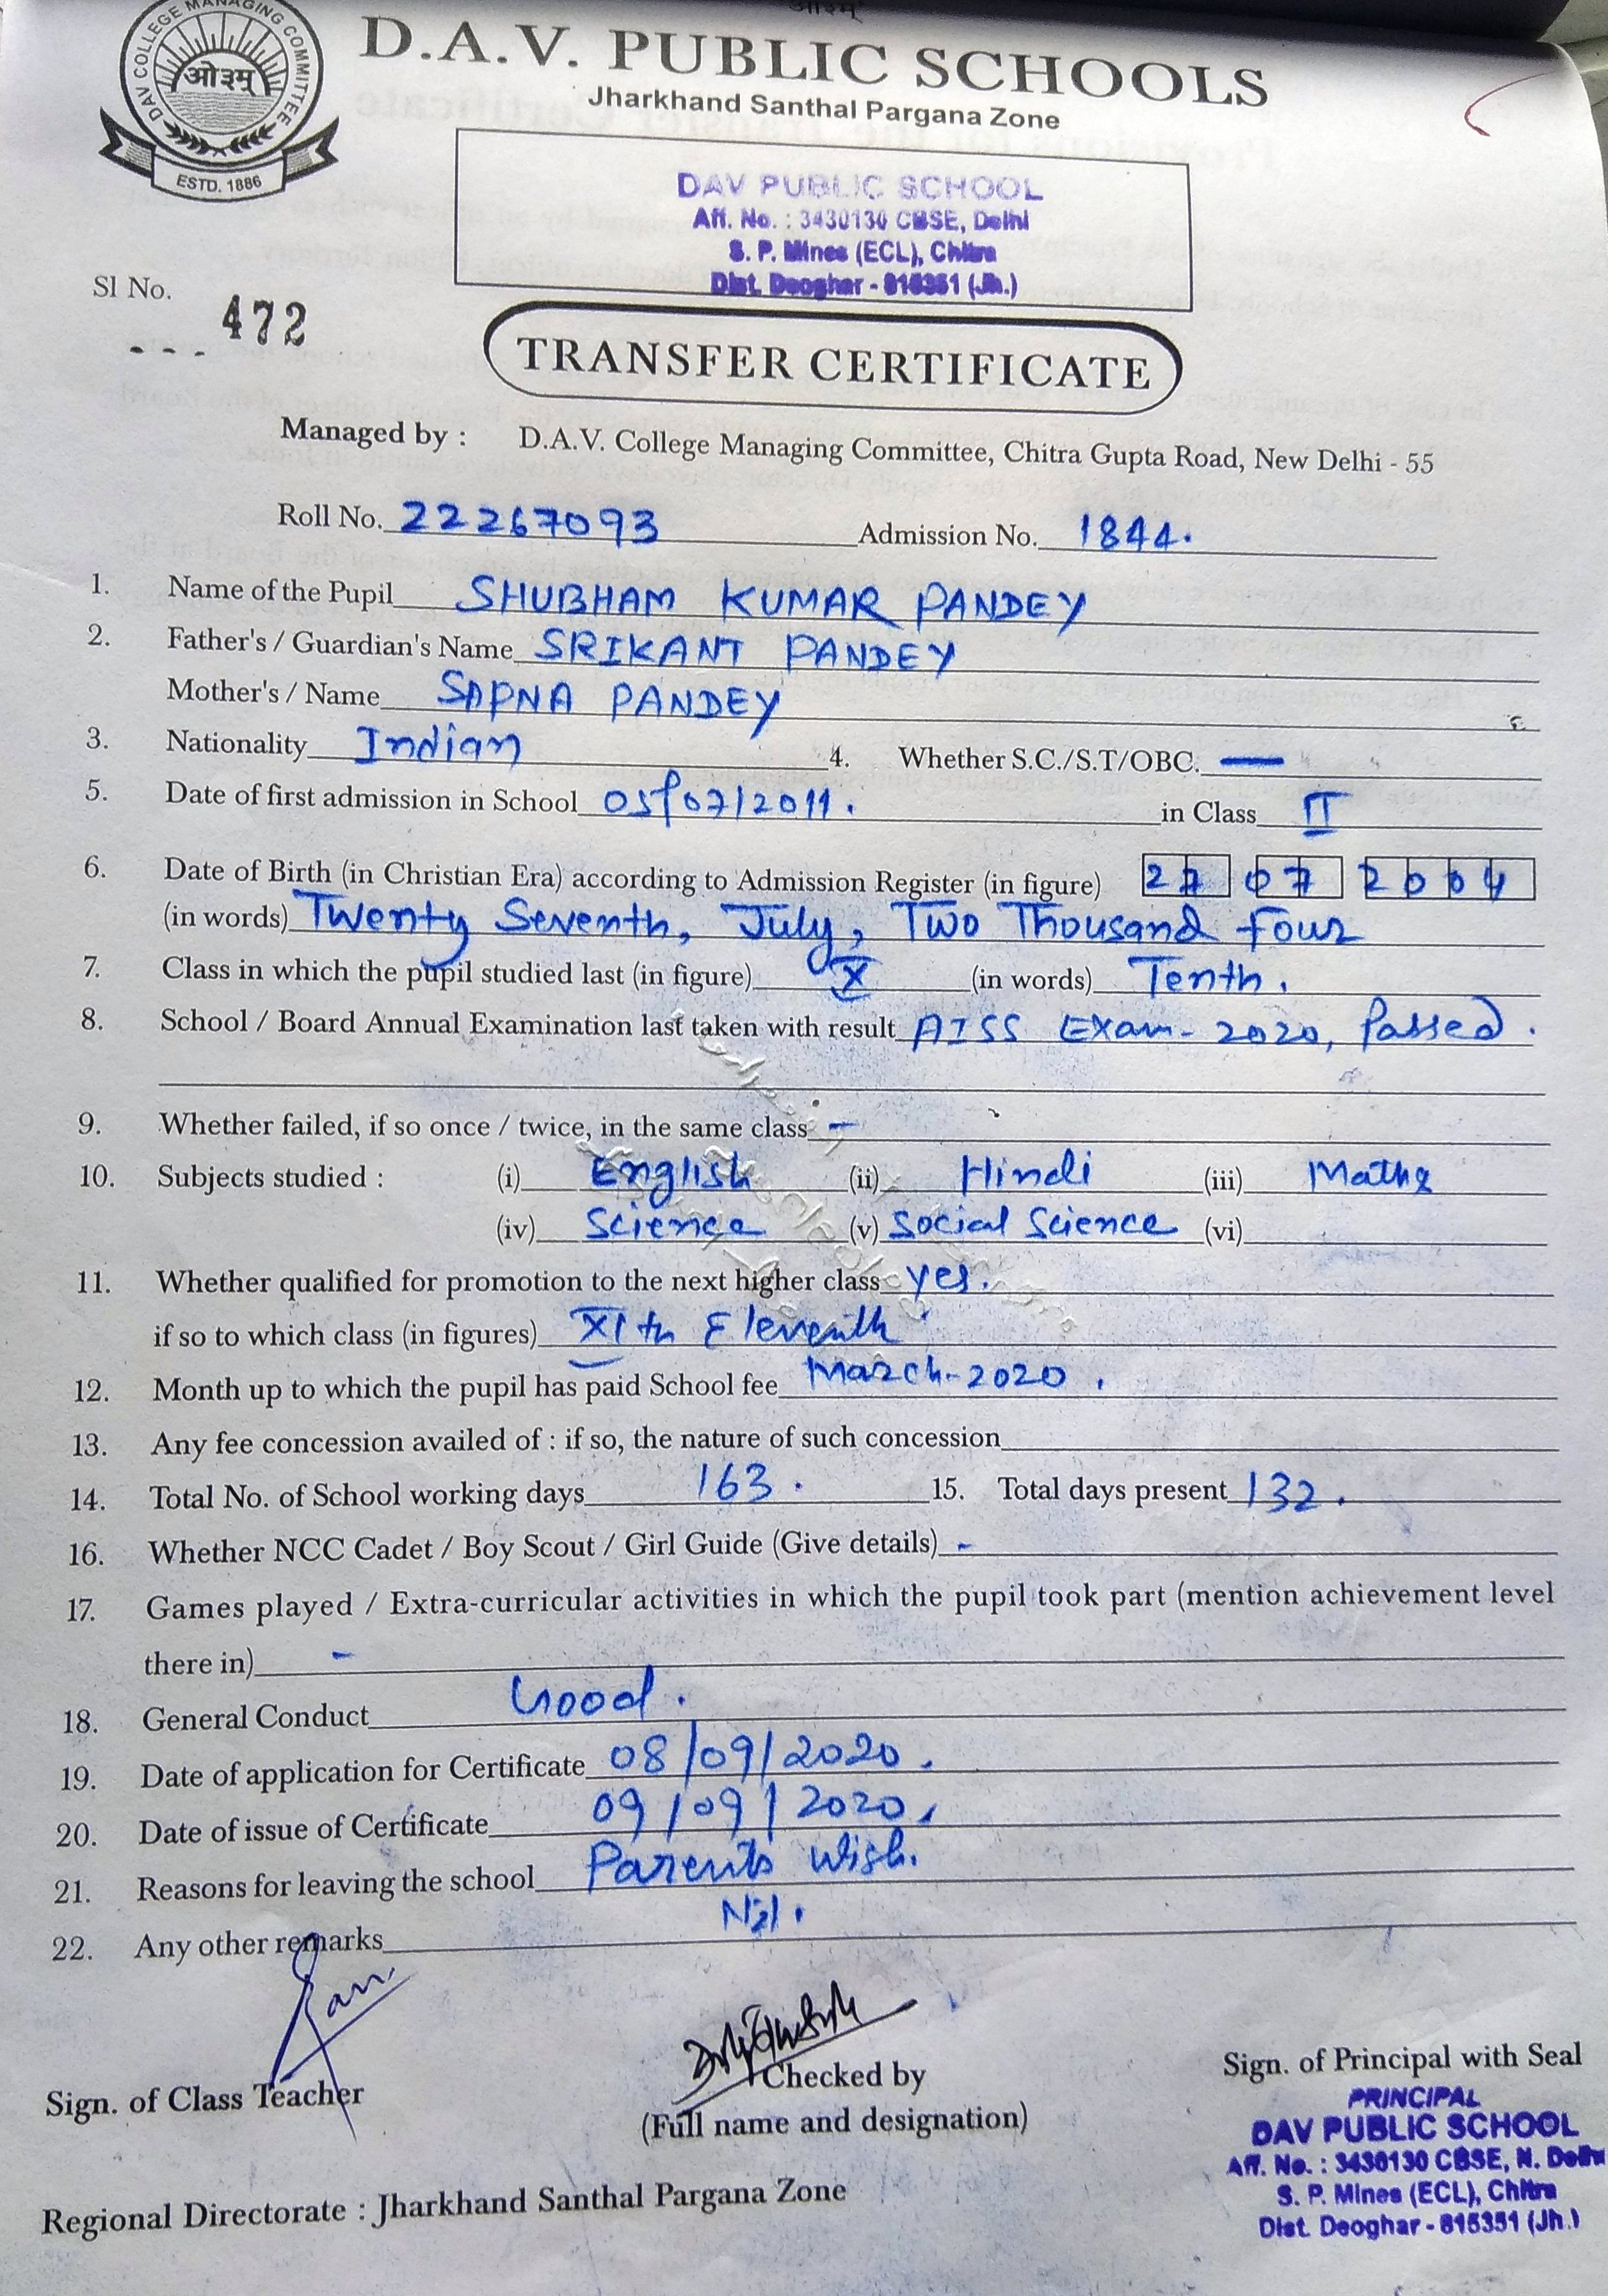 ओ३म्
DAV COLLEGE MANAGING COMMITTEE
ओ३म्
ESTD. 1886
D.A.V. PUBLIC SCHOOLS
Jharkhand Santhal Pargana Zone
DAV PUBLIC SCHOOL
Aff. No. : 3430130 CBSE, Delhi
S. P. Mines (ECL), Chitra
Dist. Deoghar - 815351 (Jh.)
Sl No. 472
TRANSFER CERTIFICATE
Managed by : D.A.V. College Managing Committee, Chitra Gupta Road, New Delhi - 55
Roll No. 22267093 Admission No. 1844.
1. Name of the Pupil SHUBHAM KUMAR PANDEY
2. Father's / Guardian's Name SRIKANT PANDEY
Mother's / Name SAPNA PANDEY
3. Nationality Indian 4. Whether S.C./S.T/OBC. —
5. Date of first admission in School 05/07/2011. in Class II
6. Date of Birth (in Christian Era) according to Admission Register (in figure) 27 07 2004
(in words) Twenty Seventh, July, Two Thousand Four
7. Class in which the pupil studied last (in figure) X (in words) Tenth.
8. School / Board Annual Examination last taken with result AISS Exam - 2020, Passed.
9. Whether failed, if so once / twice, in the same class -
10. Subjects studied : (i) English (ii) Hindi (iii) Maths
(iv) Science (v) Social Science (vi)
11. Whether qualified for promotion to the next higher class yes.
if so to which class (in figures) XIth Eleventh
12. Month up to which the pupil has paid School fee March-2020.
13. Any fee concession availed of : if so, the nature of such concession
14. Total No. of School working days 163. 15. Total days present 132.
16. Whether NCC Cadet / Boy Scout / Girl Guide (Give details) -
17. Games played / Extra-curricular activities in which the pupil took part (mention achievement level
there in) -
18. General Conduct Good.
19. Date of application for Certificate 08/09/2020.
20. Date of issue of Certificate 09/09/2020.
21. Reasons for leaving the school Parents Wish.
22. Any other remarks Nil.
Sign. of Class Teacher
Checked by
(Full name and designation)
Sign. of Principal with Seal
PRINCIPAL
DAV PUBLIC SCHOOL
Aff. No. : 3430130 CBSE, N. Delhi
S. P. Mines (ECL), Chitra
Dist. Deoghar - 815351 (Jh.)
Regional Directorate : Jharkhand Santhal Pargana Zone